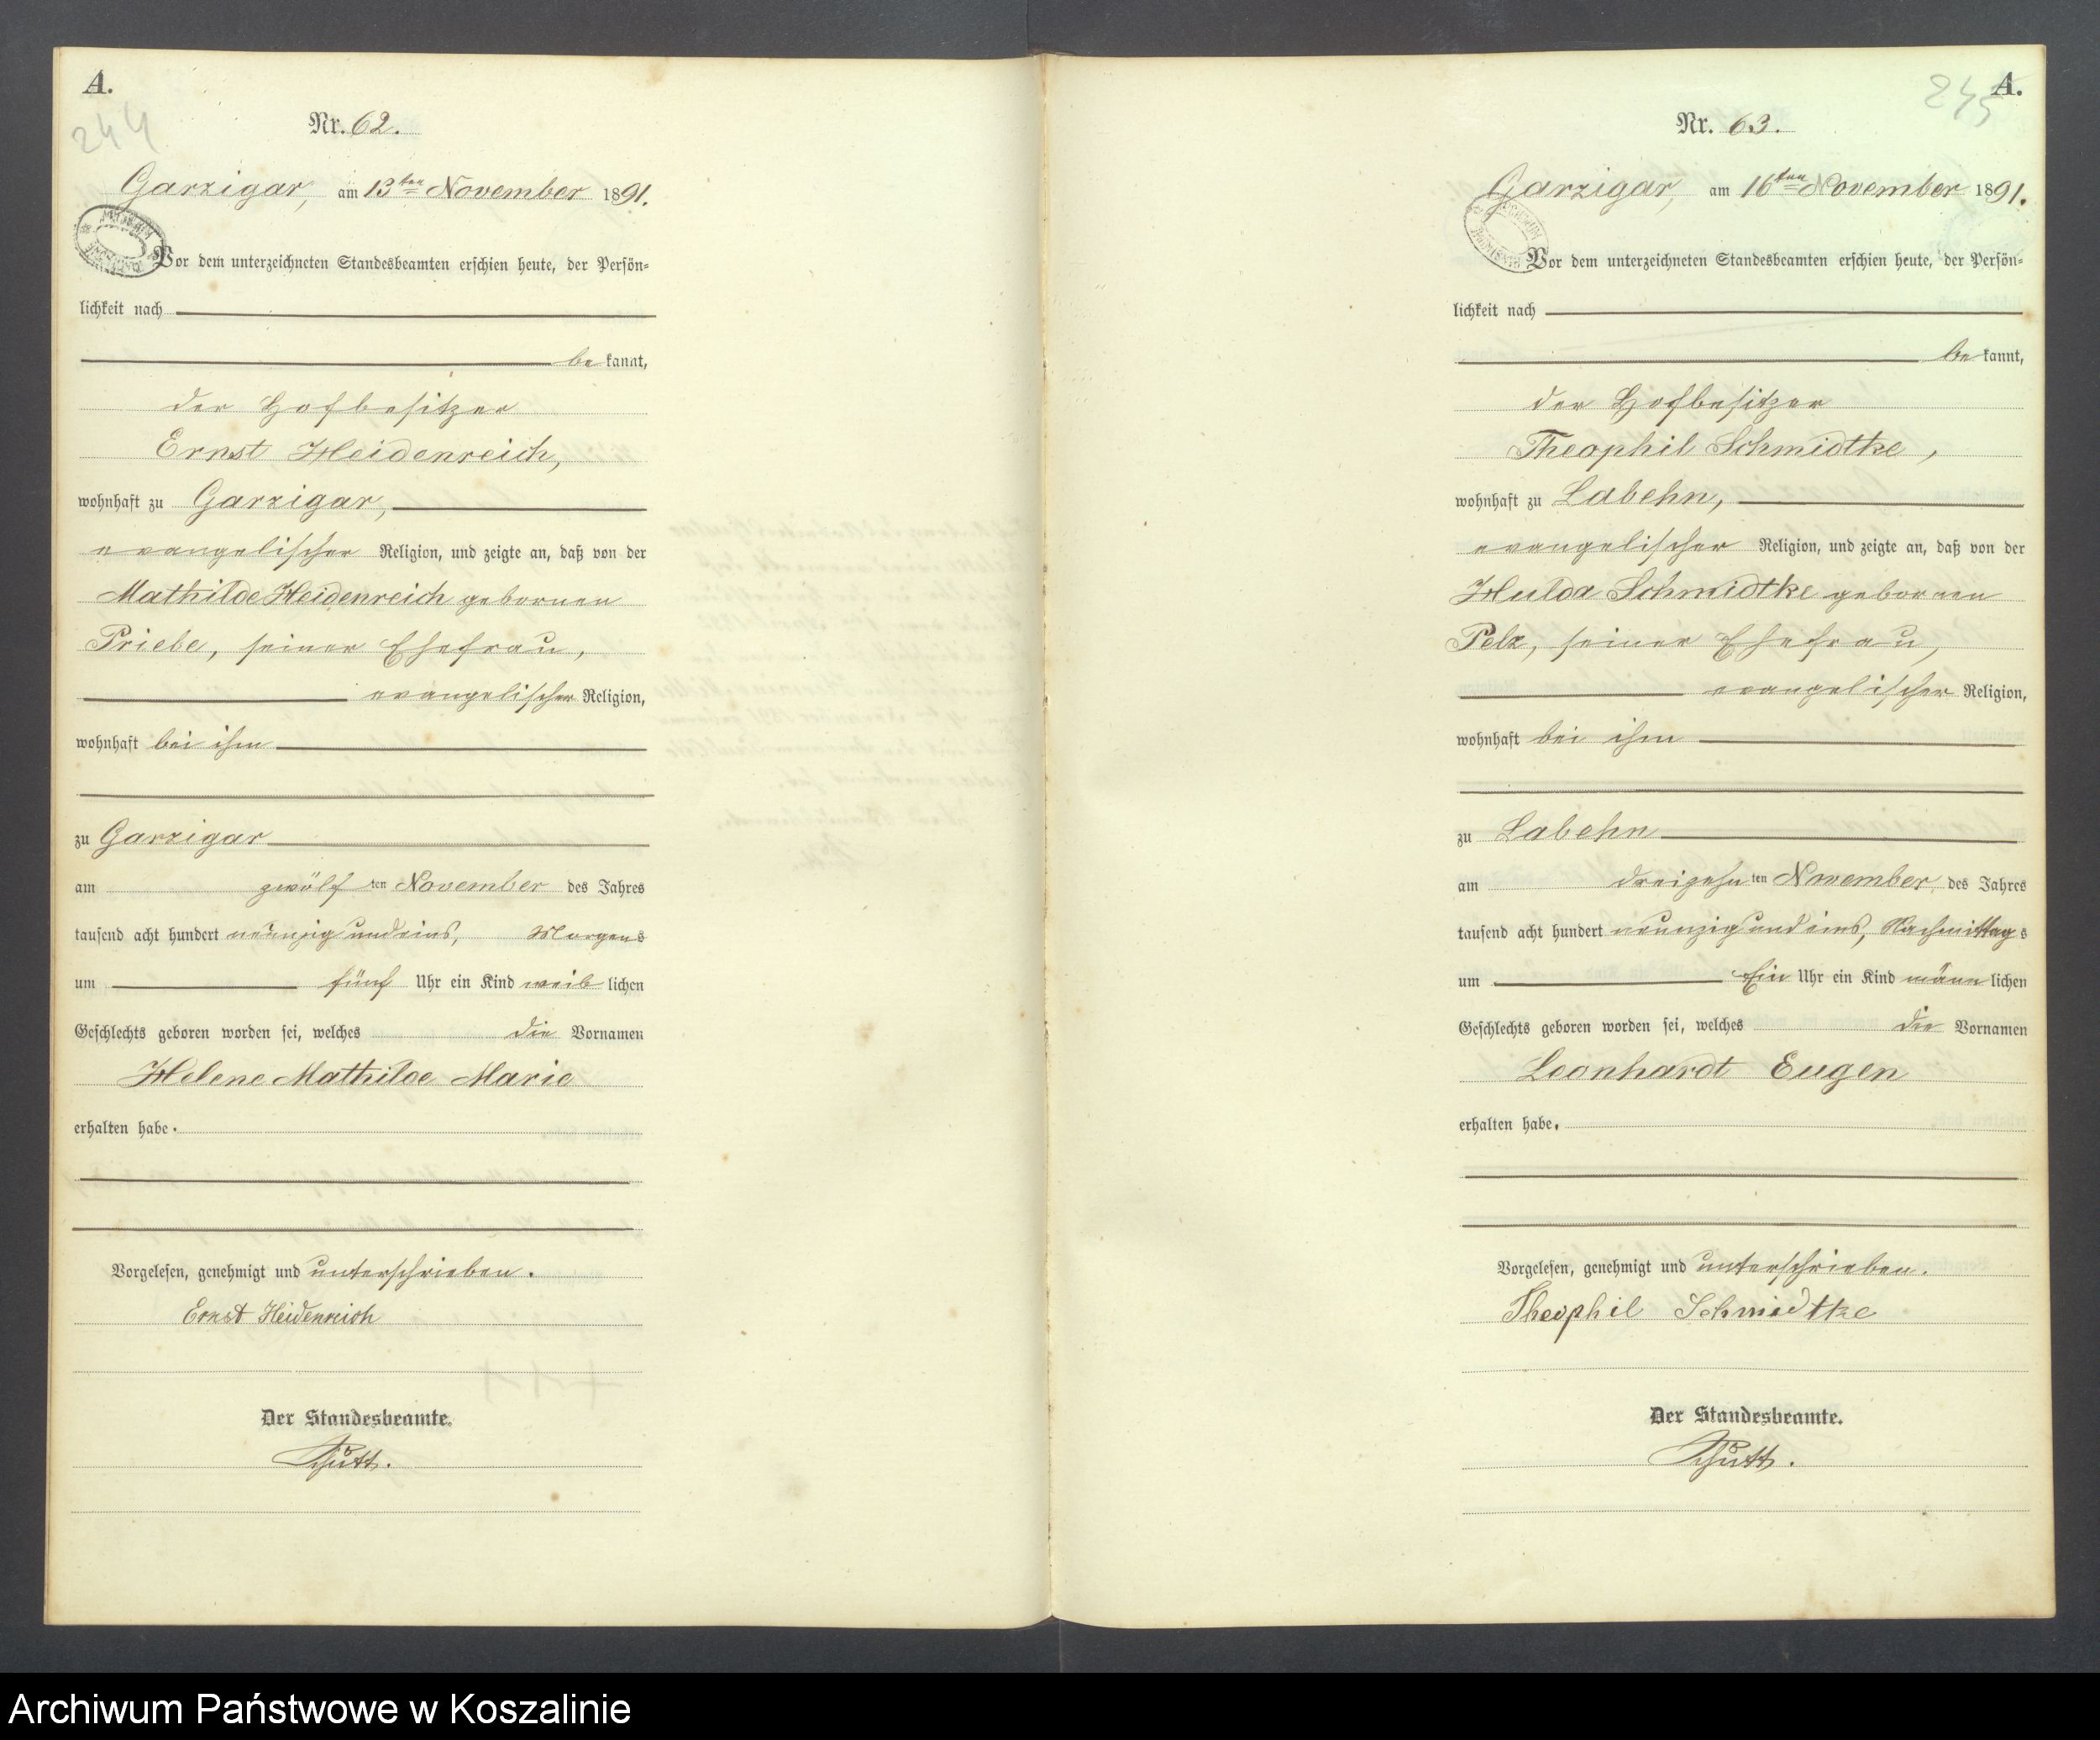 A.
244
Nr. 62.
Garzigar, am 13ten November 1891.
Vor dem unterzeichneten Standesbeamten erschien heute, der Persön-
lichkeit nach
be kannt,
der Hofbesitzer
Ernst Heidenreich,
wohnhaft zu Garzigar,
evangelischer Religion, und zeigte an, daß von der
Mathilde Heidenreich gebornen
Priebe, seiner Ehefrau,
evangelischer Religion,
wohnhaft bei ihm
zu Garzigar
am zwölf ten November des Jahres
tausend acht hundert neunzig und eins, Morgens
um fünf Uhr ein Kind weib lichen
Geschlechts geboren worden sei, welches die Vornamen
Helene Mathilde Marie
erhalten habe.
Vorgelesen, genehmigt und unterschrieben.
Ernst Heidenreich
Der Standesbeamte.
A.
245
Nr. 63.
Garzigar, am 16ten November 1891.
Vor dem unterzeichneten Standesbeamten erschien heute, der Persön-
lichkeit nach
be kannt,
der Hofbesitzer
Theophil Schmidtke,
wohnhaft zu Labehn,
evangelischer Religion, und zeigte an, daß von der
Hulda Schmidtke gebornen
Pelz, seiner Ehefrau,
evangelischer Religion,
wohnhaft bei ihm
zu Labehn
am dreizehn ten November des Jahres
tausend acht hundert neunzig und eins, Nachmittag s
um Ein Uhr ein Kind männ lichen
Geschlechts geboren worden sei, welches die Vornamen
Leonhardt Eugen
erhalten habe.
Vorgelesen, genehmigt und unterschrieben.
Theophil Schmidtke
Der Standesbeamte.
Archiwum Państwowe w Koszalinie